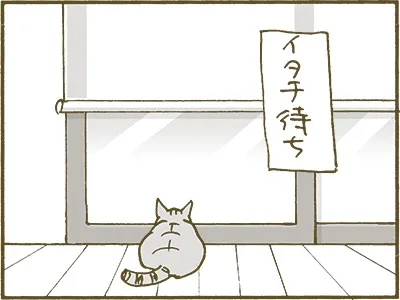 イタチ待ち